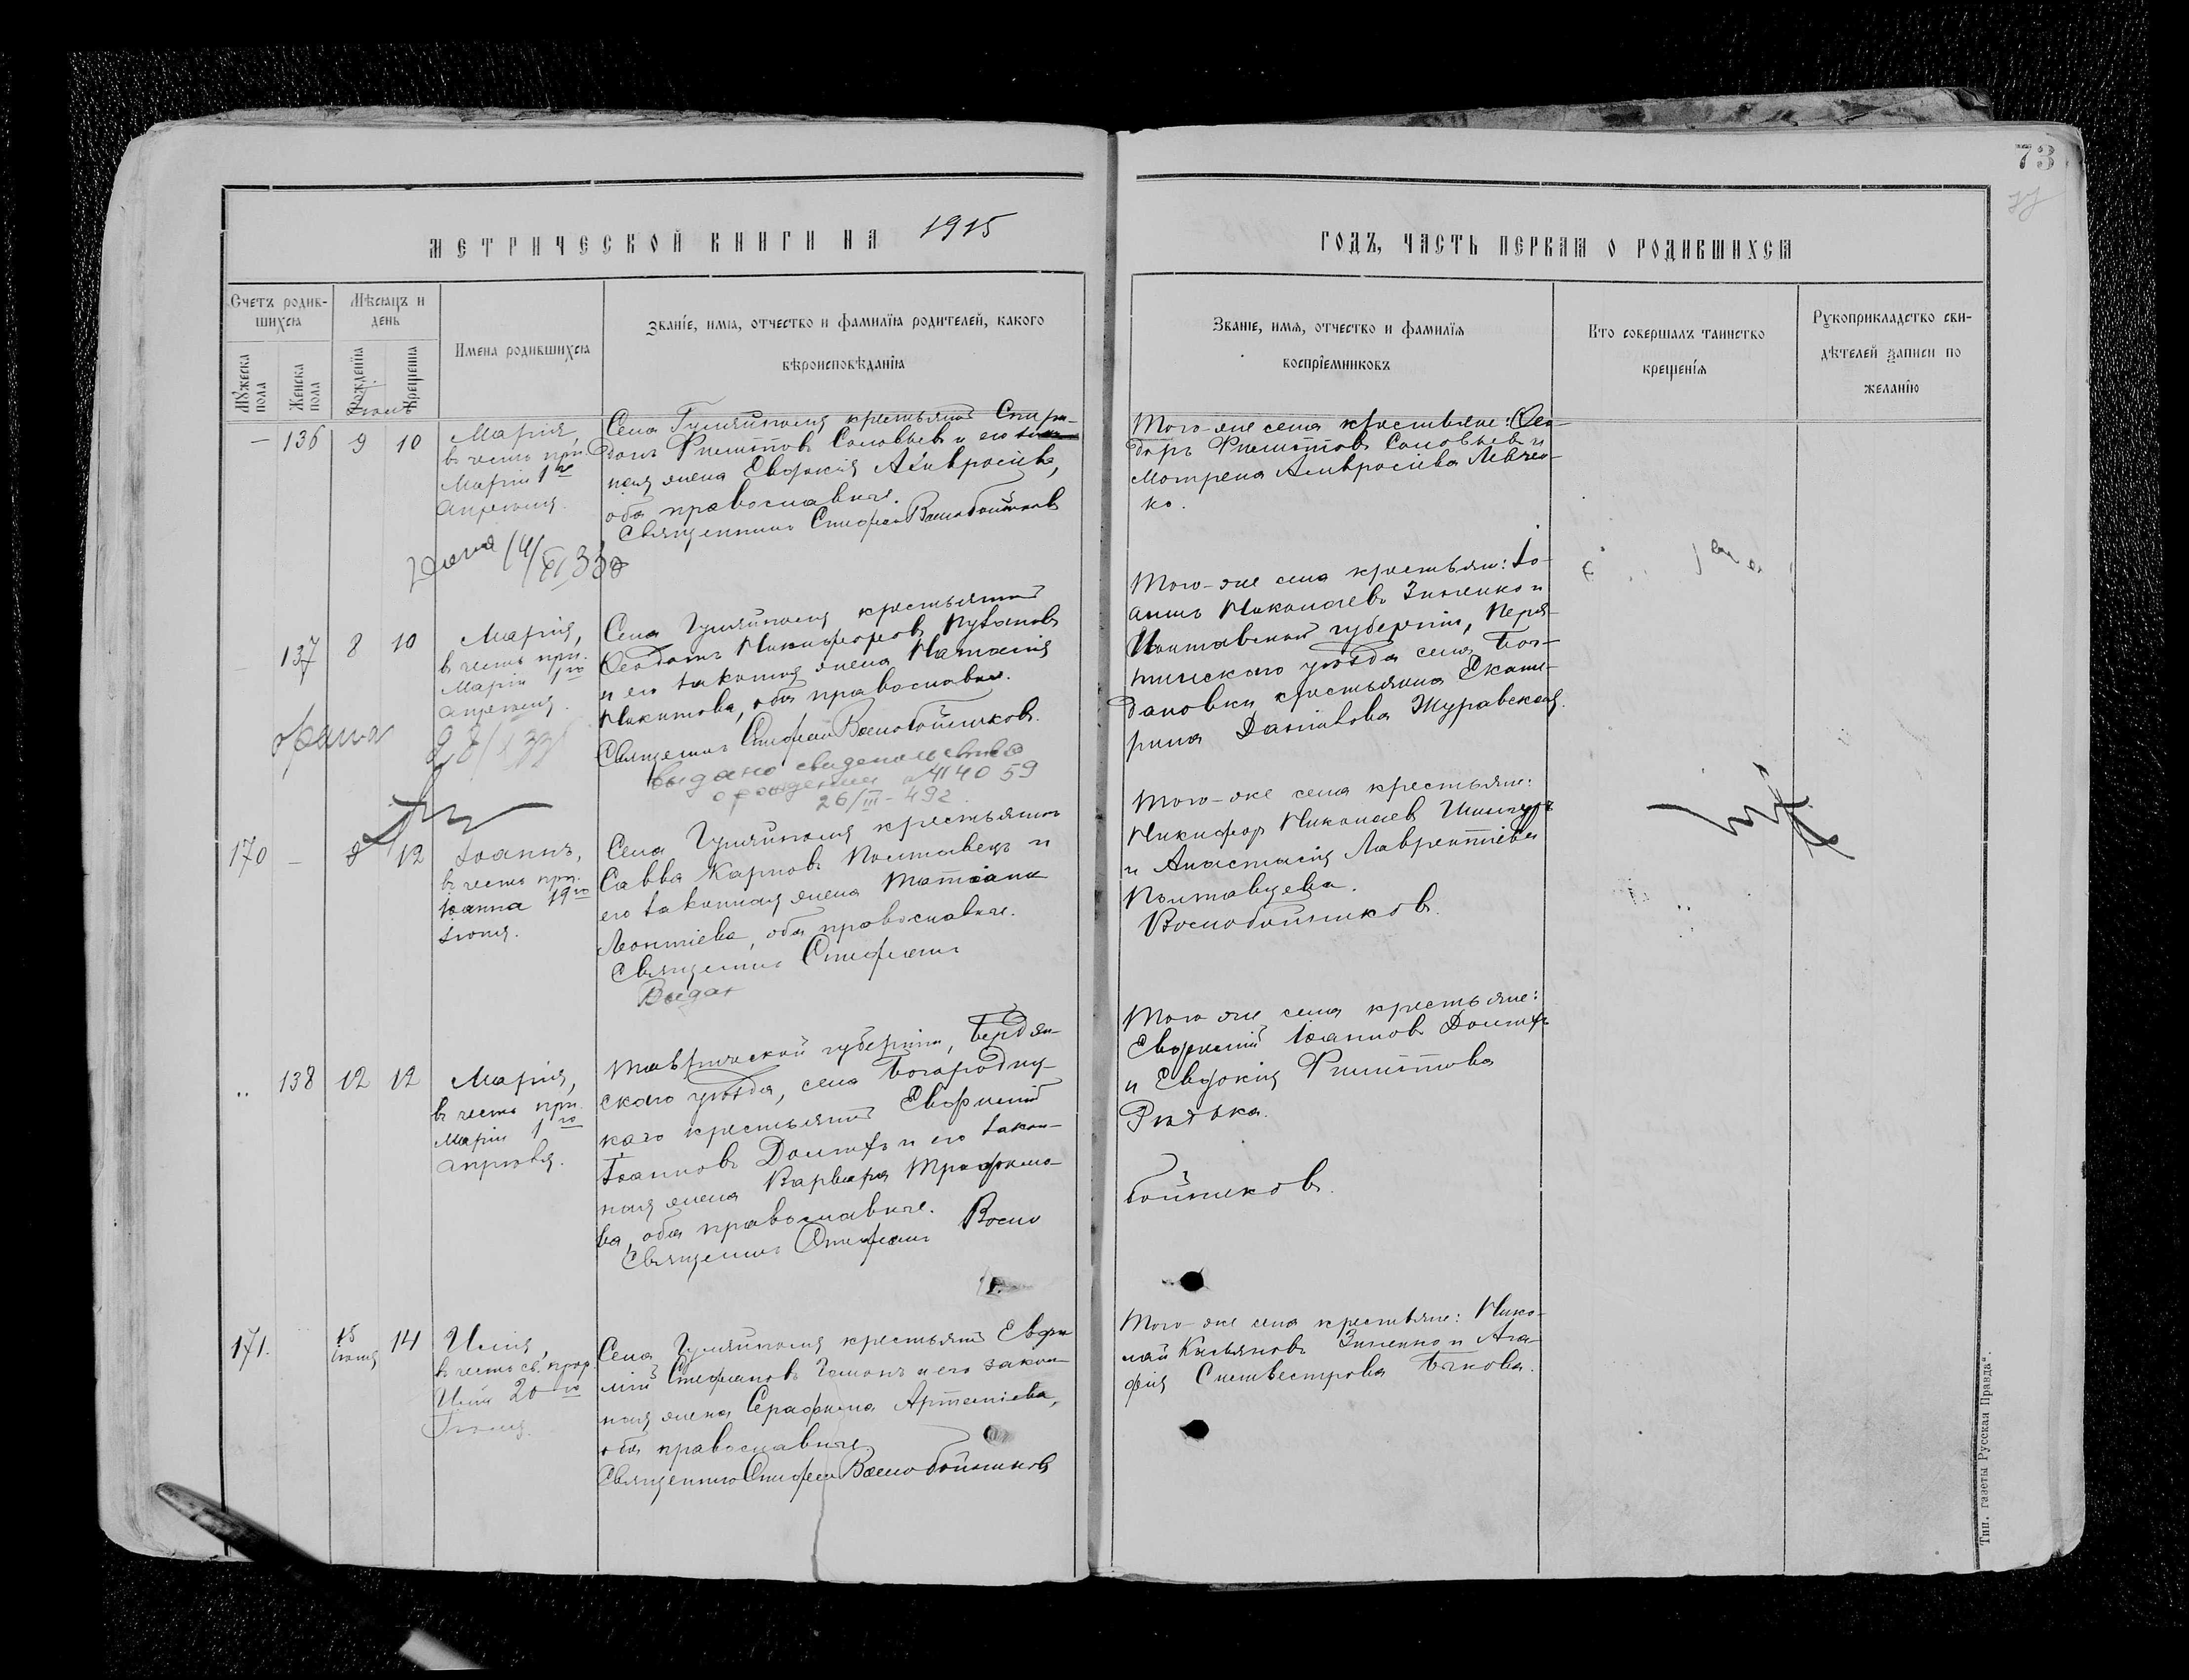 73
МЕТРИЧЕСКОЙ КНИГИ НА 1915
ГОДЪ, ЧАСТЬ ПЕРВАЯ О РОДИВШИХСЯ
Счетъ родив-
шихся
Мѣсяцъ и
день
Имена родившихся
Званіе, имя, отчество и фамилія родителей, какого
вѣроисповѣданія
Мужеска
пола
Женска
пола
Рожденія
Крещенія
Званіе, имя, отчество и фамилія
воспріемниковъ
Кто совершалъ таинство
крещенія
Рукоприкладство сви-
дѣтелей записи по
желанію
136 9 10
Марія,
въ честь прп.
Маріи 1го
апрѣля.
Села Гуляйполя крестьянинъ Спири-
донъ Филиппов Соловьев и его
ная жена Евдокія Амвросіева,
оба православные.
Священникъ Стефан Воскобойников
Того-же села крестьяне: Ѳео-
доръ Филиппов Соловьев и
Мотрена Амвросіева Левчен-
ко.
137 8 10
Марія,
въ честь прп.
Маріи 1го
апрѣля.
Села Гуляйполя крестьянинъ
Ѳеодотъ Никифоровъ
и его законная жена Наталія
Никитова, оба православные.
Священникъ Стефан Воскобойников.
Выдано свидетельство
о рождении
26/III-49г
Того-же села крестьяне: Іо-
аннъ Николаевъ Зиненко и
Полтавской губерніи, Перея-
уѣзда села Бог-
дановки крестьянка Екате-
рина Даніилова Журавская.
170 8 12
Іоаннъ,
въ честь прп.
Іоанна 19го
іюня.
Села Гуляйполя крестьянинъ
Савва Карповъ Полтавецъ и
его законная жена Татіана
Леонтіева, оба православные.
Священникъ Стефанъ
Выдан
Того-же села крестьяне:
Никифор Николаев
и Анастасія Лаврентіева
Полтавцева.
Воскобойников.
138 12 12
Марія,
въ честь прп.
Маріи 1го
апрѣля.
Таврической губерніи, Бердян-
скаго уѣзда, села Богородиц-
каго крестьянинъ Евфимій
Іоанновъ и его закон-
ная жена Варвара Трофимо-
ва, оба православные.
Священникъ Стефанъ Воско
Того же села крестьяне:
Евфимій Іоаннов
и Евдокія Филиппова
бойников.
171. 15 14
Илія,
въ честь св. прор.
Иліи 20го
Іюля.
Села Гуляйполя крестьянинъ Евфи
мій Стефановъ и его закон-
ная жена Серафима Артеміева,
оба православные.
Священникъ Стефан Воскобойников
Того-же села крестьяне: Нико-
лай Касьяновъ Зиненко и Ага-
фія Сильвестрова
Тип. газеты „Русская Правда“.